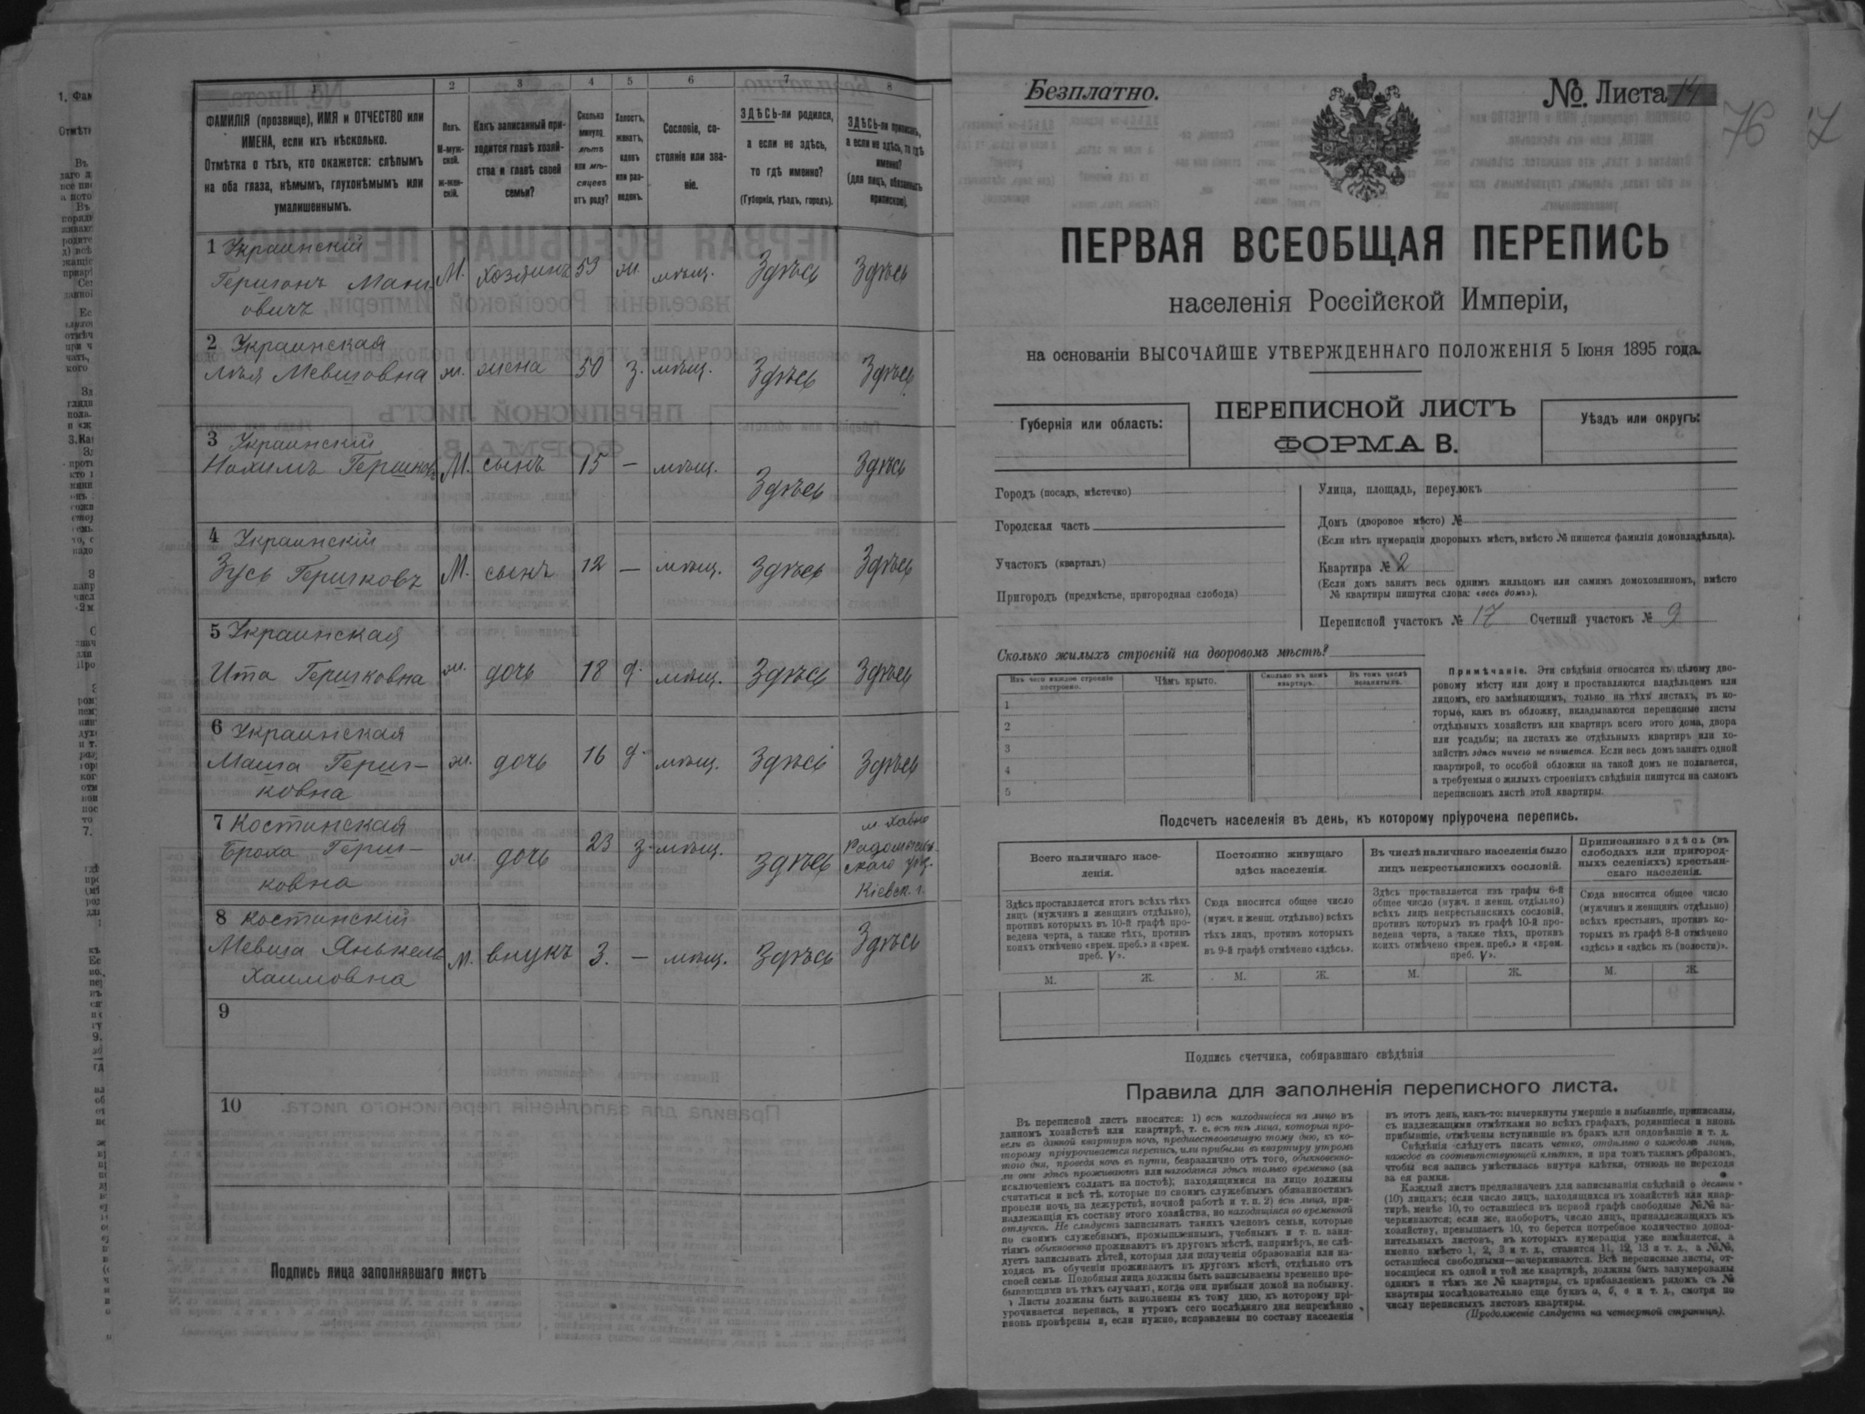 1 2 3 4 5 6 7 8
ФАМИЛІЯ (прозвище), ИМЯ и ОТЧЕСТВО или
ИМЕНА, если ихъ нѣсколько.
Отмѣтка о тѣхъ, кто окажется: слѣпымъ
на оба глаза, нѣмымъ, глухонѣмымъ или
умалишеннымъ.
Полъ.
М-муж-
ской.
ж-жен-
скій.
Какъ записанный при-
ходится главѣ хозяй-
ства и главѣ своей
семьи?
Сколько
минуло
лѣтъ
или мѣ-
сяцевъ
отъ роду?
Холостъ,
женатъ,
вдовъ
или раз-
веденъ.
Сословіе, со-
стояніе или зва-
ніе.
ЗДѢСЬ-ли родился,
а если не здѣсь,
то гдѣ именно?
(Губернія, уѣздъ, городъ).
ЗДѢСЬ-ли приписанъ,
а если не здѣсь, то гдѣ
именно?
(для лицъ, обязанныхъ
припискою).
1 Украинскій
Гершонъ Мано-
овичъ М. хозяинъ 53 ж. мѣщ. Здѣсь Здѣсь
2 Украинская
Лея Мевшовна ж. жена 50 з. мѣщ. Здѣсь Здѣсь
3 Украинскій
Нахимъ Гершков. М. сынъ 15 — мѣщ. Здѣсь Здѣсь
4 Украинскій
Зусь Гершковъ М. сынъ 12 — мѣщ. Здѣсь Здѣсь
5 Украинская
Ита Гершковна ж. дочь 18 д. мѣщ. Здѣсь Здѣсь
6 Украинская
Маша Герш-
ковна ж. дочь 16 д. мѣщ. Здѣсь Здѣсь
7 Костинская
Броха Герш-
ковна ж. дочь 23 з. мѣщ. Здѣсь м. Хабно
Радомысль-
скаго уѣз.
Кіевск. г.
8 Костинскій
Мевша Янькель
Хаимовна М. внукъ 3. — мѣщ. Здѣсь Здѣсь
9
10
Подпись лица заполнявшаго листъ
Безплатно.
№ Листа 14
76
7
ПЕРВАЯ ВСЕОБЩАЯ ПЕРЕПИСЬ
населенія Россійской Имперіи,
на основаніи ВЫСОЧАЙШЕ УТВЕРЖДЕННАГО ПОЛОЖЕНІЯ 5 Іюня 1895 года.
Губернія или область:
ПЕРЕПИСНОЙ ЛИСТЪ
ФОРМА В.
Уѣздъ или округъ:
Городъ (посадъ, мѣстечко)
Городская часть
Участокъ (кварталъ)
Пригородъ (предмѣстье, пригородная слобода)
Улица, площадь, переулокъ
Домъ (дворовое мѣсто) №
(Если нѣтъ нумераціи дворовыхъ мѣстъ, вмѣсто № пишется фамилія домовладѣльца).
Квартира № 2
(Если домъ занятъ весь однимъ жильцомъ или самимъ домохозяиномъ, вмѣсто
№ квартиры пишутся слова: «весь домъ»).
Переписной участокъ № 17 Счетный участокъ № 9
Сколько жилыхъ строеній на дворовомъ мѣстѣ?
Изъ чего каждое строеніе
построено.
Чѣмъ крыто.
Сколько въ немъ
квартиръ.
Въ томъ числѣ
незанятыхъ.
1
2
3
4
5
Примѣчаніе. Эти свѣдѣнія относятся къ цѣлому дво-
ровому мѣсту или дому и проставляются владѣльцемъ или
лицомъ, его замѣняющимъ, только на тѣхъ листахъ, въ ко-
торые, какъ въ обложку, вкладываются переписные листы
отдѣльныхъ хозяйствъ или квартиръ всего этого дома, двора
или усадьбы; на листахъ же отдѣльныхъ квартиръ или хо-
зяйствъ здѣсь ничего не пишется. Если весь домъ занятъ одной
квартирой, то особой обложки на такой домъ не полагается,
а требуемыя о жилыхъ строеніяхъ свѣдѣнія пишутся на самомъ
переписномъ листѣ этой квартиры.
Подсчетъ населенія въ день, къ которому пріурочена перепись.
Всего наличнаго насе-
ленія.
Постоянно живущаго
здѣсь населенія.
Въ числѣ наличнаго населенія было
лицъ некрестьянскихъ сословій.
Приписаннаго здѣсь (въ
слободахъ или пригород-
ныхъ селеніяхъ) крестьян-
скаго населенія.
Здѣсь проставляется итогъ всѣхъ тѣхъ
лицъ (мужчинъ и женщинъ отдѣльно),
противъ которыхъ въ 10-й графѣ про-
ведена черта, а также тѣхъ, противъ
коихъ отмѣчено «врем. преб.» и «врем.
преб. V».
Сюда вносится общее число
(мужч. и женщ. отдѣльно) всѣхъ
тѣхъ лицъ, противъ которыхъ
въ 9-й графѣ отмѣчено «здѣсь».
Здѣсь проставляется изъ графы 6-й
общее число (мужч. и женщ. отдѣльно)
всѣхъ лицъ некрестьянскихъ сословій,
противъ которыхъ въ графѣ 10-й про-
ведена черта, а также тѣхъ, противъ
коихъ отмѣчено «врем. преб.» и «врем.
преб. V».
Сюда вносится общее число
(мужчинъ и женщинъ отдѣльно)
всѣхъ крестьянъ, противъ ко-
торыхъ въ графѣ 8-й отмѣчено
«здѣсь» и «здѣсь къ (волости)».
М. Ж. М. Ж. М. Ж. М. Ж.
Подпись счетчика, собиравшаго свѣдѣнія
Правила для заполненія переписного листа.
Въ переписной листъ вносятся: 1) всѣ находящіеся на лицо въ
данномъ хозяйствѣ или квартирѣ, т. е. всѣ тѣ лица, которыя про-
вели въ данной квартирѣ ночь, предшествовавшую тому дню, къ ко-
торому пріурочивается перепись, или прибыли въ квартиру утромъ
того дня, проведя ночь въ пути, безразлично отъ того, обыкновенно-
ли они здѣсь проживаютъ или находятся здѣсь только временно (за
исключеніемъ солдатъ на постоѣ); находящимися на лицо должны
считаться и всѣ тѣ, которые по своимъ служебнымъ обязанностямъ
провели ночь на дежурствѣ, ночной работѣ и т. п. 2) всѣ лица, при-
надлежащія къ составу этого хозяйства, но находящіяся во временной
отлучкѣ. Не слѣдуетъ записывать такихъ членовъ семьи, которые
по своимъ служебнымъ, промышленнымъ, учебнымъ и т. п. заня-
тіямъ обыкновенно проживаютъ въ другомъ мѣстѣ, напримѣръ, не слѣ-
дуетъ записывать дѣтей, которыя для полученія образованія или на-
ходясь въ обученіи проживаютъ въ другомъ мѣстѣ, отдѣльно отъ
своей семьи. Подобныя лица должны быть записываемы временно пре-
бывающими въ тѣхъ случаяхъ, когда они прибыли домой на побывку.
Листы должны быть заполнены къ тому дню, къ которому прі-
урочивается перепись, и утромъ сего послѣдняго дня непремѣнно
вновь провѣрены и, если нужно, исправлены по составу населенія
въ этотъ день, какъ-то: вычеркнуты умершіе и выбывшіе, приписаны,
съ надлежащими отмѣтками во всѣхъ графахъ, родившіеся и вновь
прибывшіе, отмѣчены вступившіе въ бракъ или овдовѣвшіе и т. д.
Свѣдѣнія слѣдуетъ писать четко, отдѣльно о каждомъ лицѣ,
каждое въ соотвѣтствующей клѣткѣ, и при томъ такимъ образомъ,
чтобы вся запись умѣстилась внутри клѣтки, отнюдь не переходя
за ея рамки.
Каждый листъ предназначенъ для записыванія свѣдѣній о десяти
(10) лицахъ; если число лицъ, находящихся въ хозяйствѣ или квар-
тирѣ, менѣе 10, то оставшіеся въ первой графѣ свободные №№ за-
черкиваются; если же, наоборотъ, число лицъ, принадлежащихъ къ
хозяйству, превышаетъ 10, то берется потребное количество допол-
нительныхъ листовъ, въ которыхъ нумерація уже измѣняется, а
именно вмѣсто 1, 2, 3 и т. д., ставится 11, 12, 13 и т. д., а №№,
оставшіеся свободными—зачеркиваются. Всѣ переписные листы, от-
носящіеся къ одной и той же квартирѣ, должны быть занумерованы
однимъ и тѣмъ же № квартиры, съ прибавленіемъ рядомъ съ №
квартиры послѣдовательно еще буквъ а, б, в и т. д., смотря по
числу переписныхъ листовъ квартиры.
(Продолженіе слѣдуетъ на четвертой страницѣ).